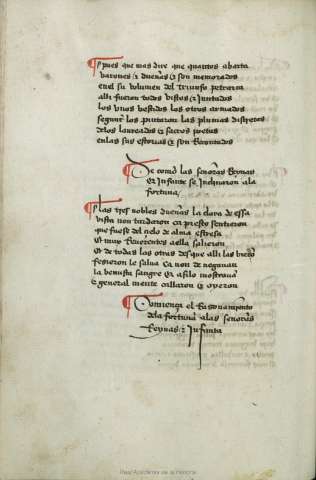 pues que mas dire que quantos abarca
varones & dueñas & son memorados
en el su volumen del triunfo petrarca
alli fueron todos vistos & juntados
los vnos vestidos los otros armados
segunt los pintaron las plumas discretas
delos laureados & sacros poetas
en las sus estorias & son Razonados
De como las señoras Reynas
Et Infante se Inclinaron ala
fortuna
las tres nobles dueñas la clara de essa
vista non tardaron ca presto sentieron
que fuese del çielo de alma
Et muy Reuerentes aella salieron
Et de todas las otras desque alli las vieron
fezieron le salua ca non de negauan
la venusta sangre Et asilo mostrauan
E general mente callaron & oyeron
Comiença el Razonamiento
dela fortuna alas señoras
Reynas & Infanta
Real Academia de la Historia